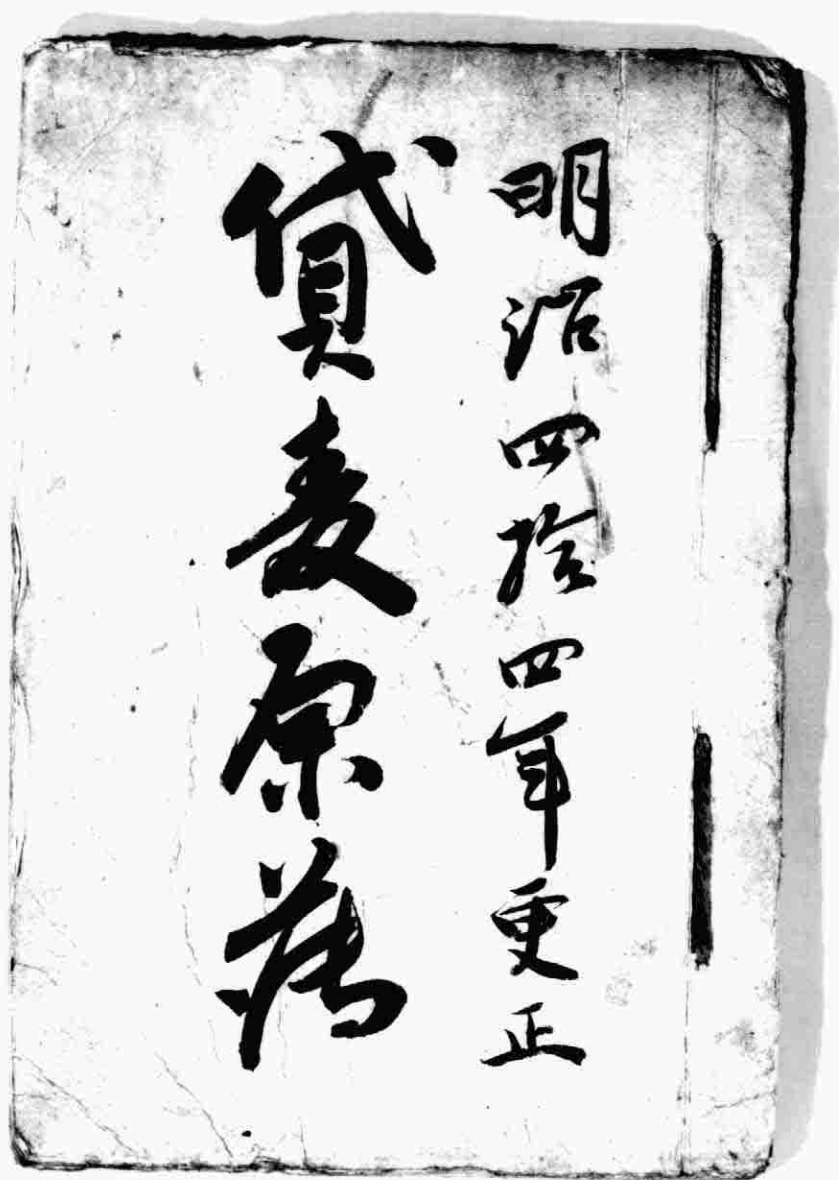 明治四拾四年更正
貸麦原簿